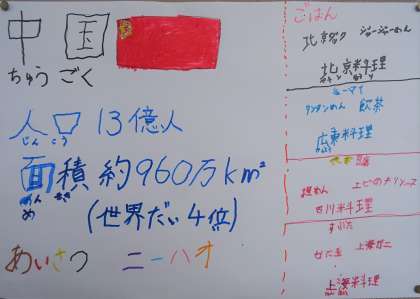 中国
ちゅうごく
人口 13億人
じんこう
面積 約960万km²
めんせき
(世界だい4位)
あいさつ ニーハオ
ごはん
北京ダック ジャージャーめん
北京料理
シューマイ
タンタンめん 飲茶
広東料理
担めん エビのチリソース
四川料理
すぶた
上海ガニ
上海料理